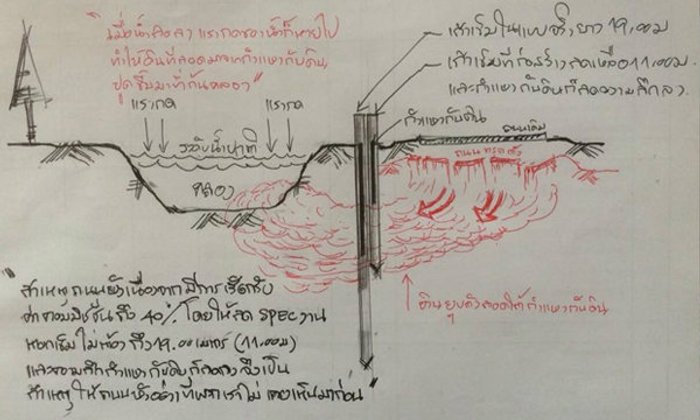 "เมื่อน้ำลดลง แรงกดของน้ำก็หายไป
ทำให้ดินที่ลอดมาจากกำแพงกันดิน
ปูดขึ้นมาที่ก้นคลอง"
แรงกด
แรงกด
ระดับน้ำปกติ
คลอง
เสาเข็มในแบบจริงยาว 19.00ม
เสาเข็มที่ก่อสร้างลดเหลือ 11.00ม.
และกำแพงกันดินก็ลดความลึกลง
กำแพงกันดิน
ถนนเดิม
ถนนทรุดตัว
ดินยุบตัวลอดใต้กำแพงกันดิน
"สาเหตุถนนพังเนื่องจากมีการเรียกรับ
ค่าคอมมิชชั่นถึง 40% โดยให้ลด SPEC งาน
ตอกเข็มไม่ต้องถึง 19.00เมตร (11.00ม)
และความลึกกำแพงกันดินก็ลดลง จึงเป็น
สาเหตุให้ถนนพังอย่างที่พวกเราไม่เคยเห็นมาก่อน"